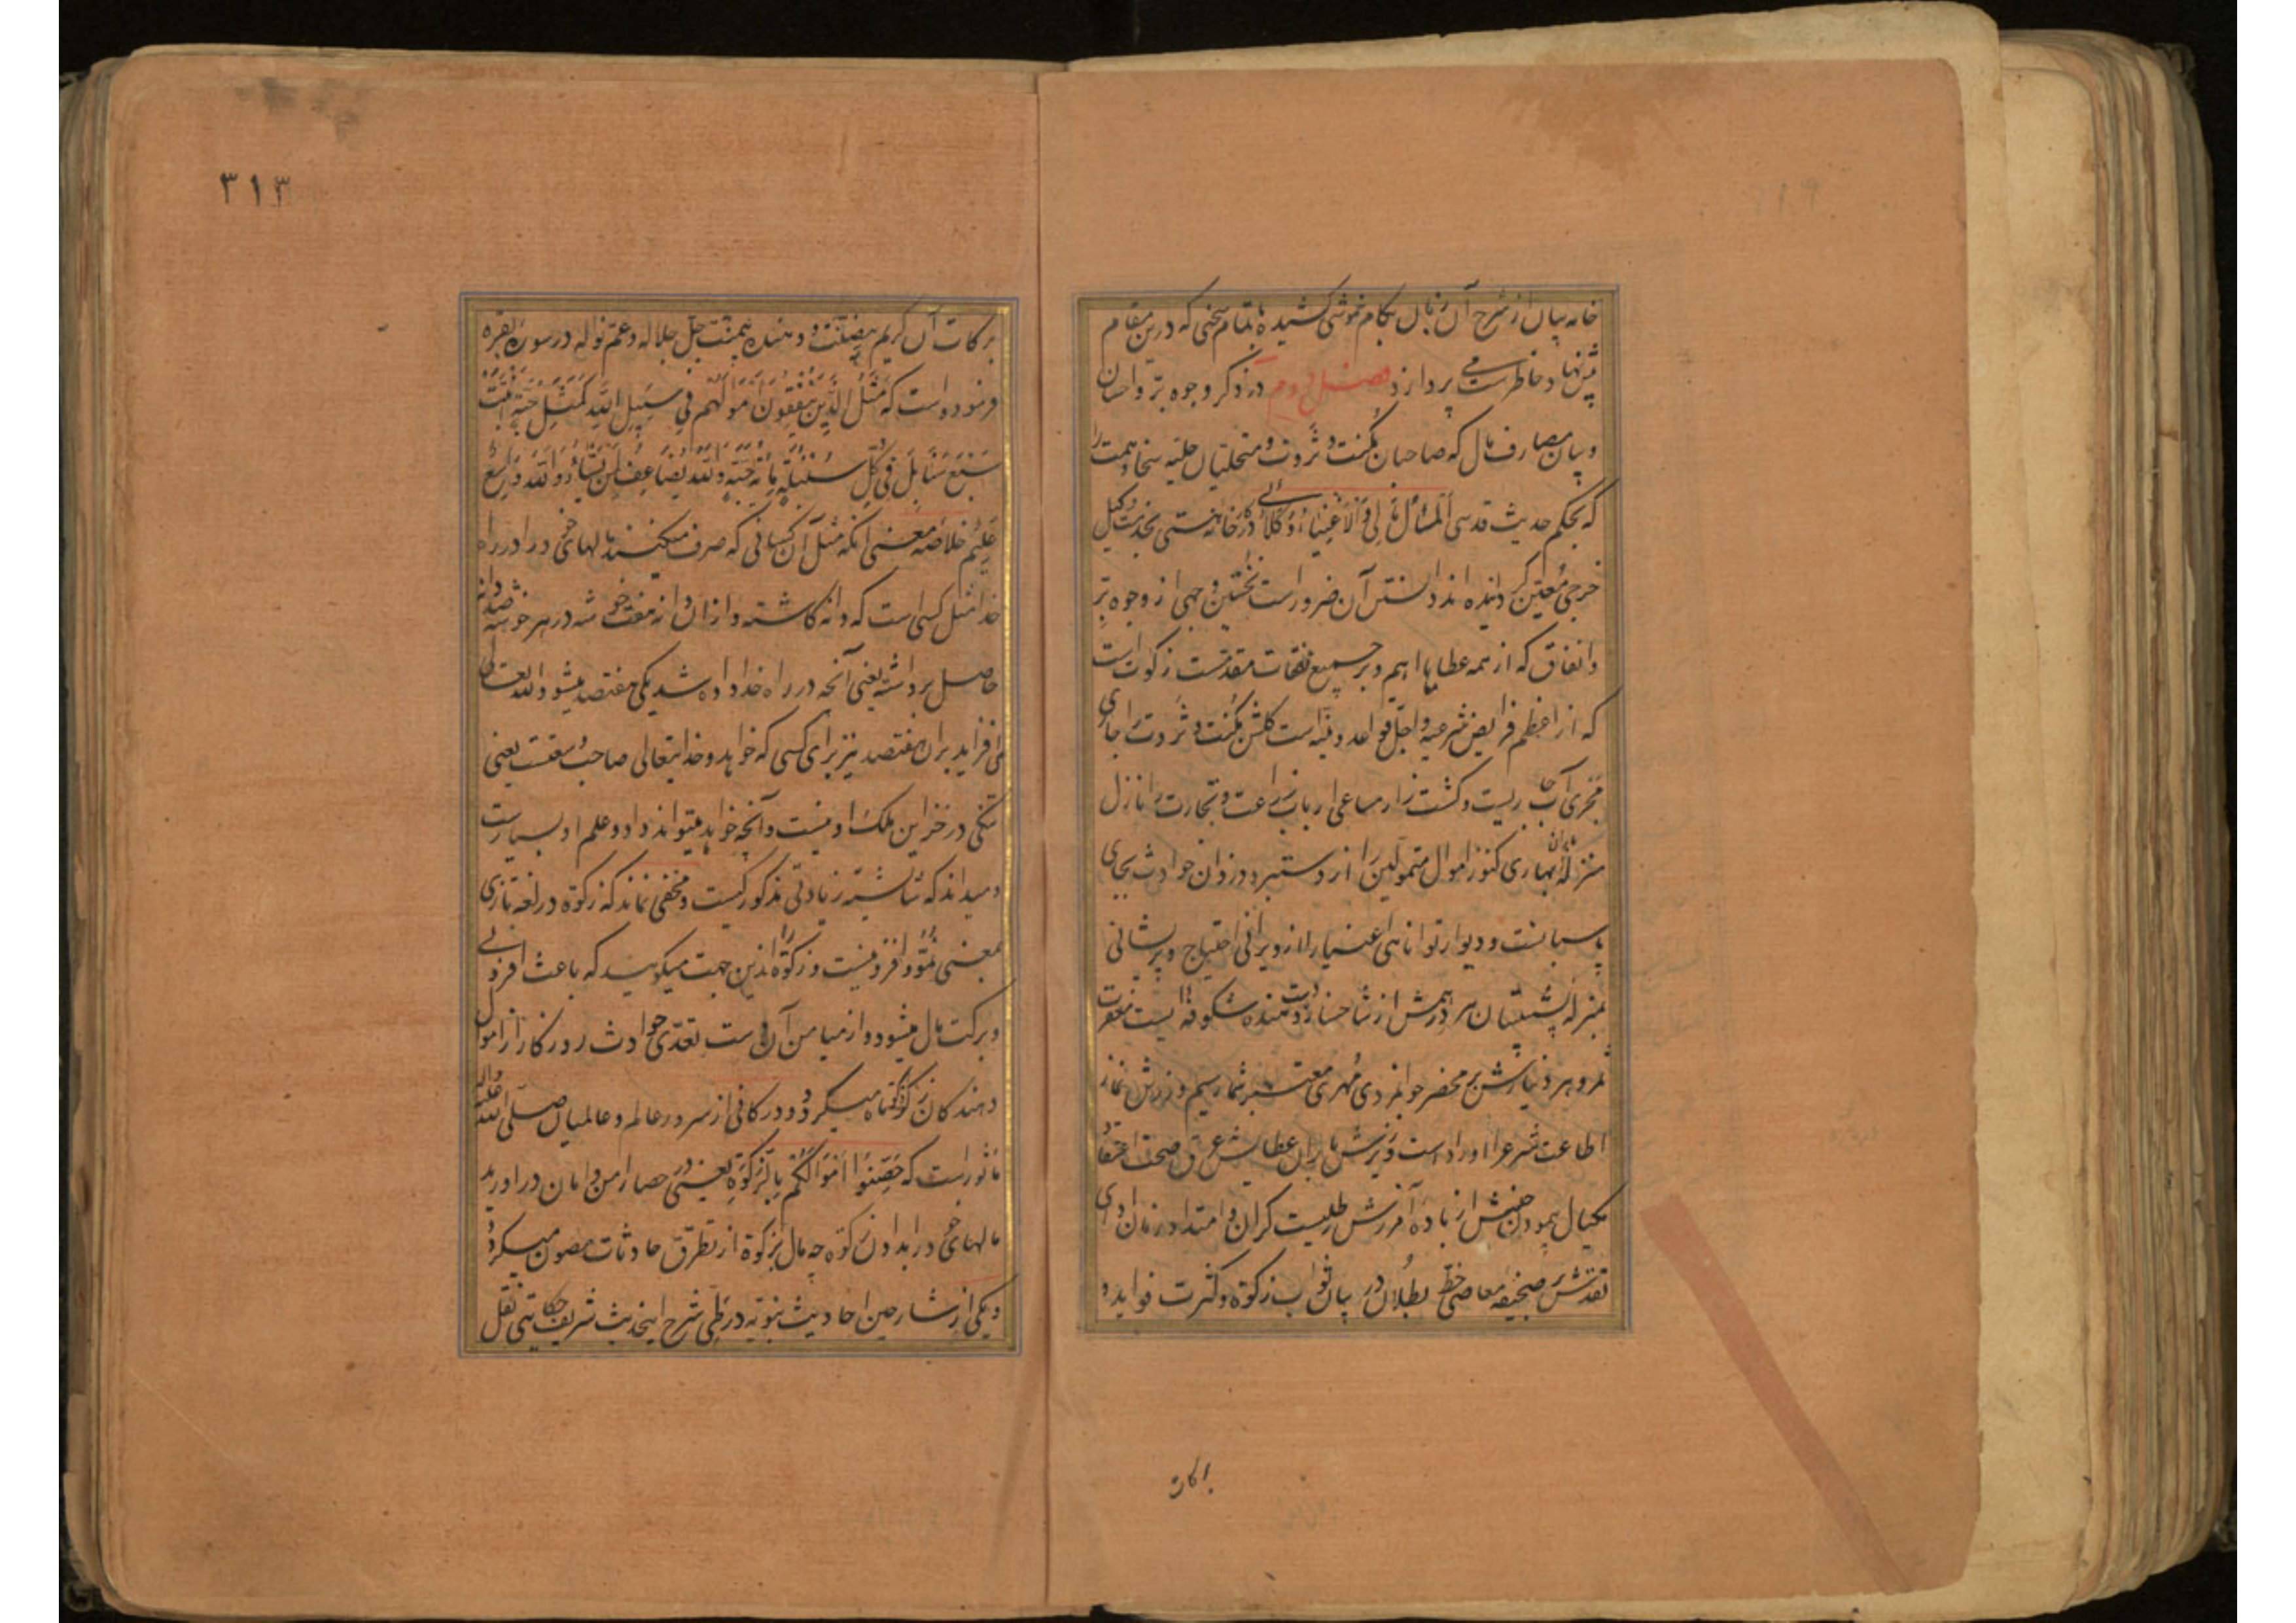 خامه بیان از شرح آن زبان بکام خموشی کشیده باتمام سخنی که درین مقام
پیش نهاد خاطرست می پردازد فصل دوم در ذکر وجوه برّ و احسان
و بیان مصارف مال که صاحبان مکنت و ثروت و متحلیان حلیه سخا و همت را
که بحکم حدیث قدسی المال مالی و الاغنیاء وکلائی در کارخانه هستی بخدمت وکیل
خرجی معیّن گردانیده اند دانستن آن ضرور است نخستین وجهی از وجوه برّ
و انفاق که از همه عطایا اهم و بر جمیع نفقات مقدمست زکوت است
که از اعظم فرایض شرعیه و اجلّ قواعد دینیه است گلشن مکنت و ثروت را بجای
مجرای آب جاریست و کشت زار مساعی ارباب زراعت و تجارت را نازل
منزله باران بهاری کنوز اموال متمولین را از دستبرد دزدان حوادث بجای
پاسبانست و دیوار توانائی اغنیا را از ویرانی احتیاج و پریشانی
بمنزله پشتیبان هر درهمش از شاخسار دست دهنده شکوفه ایست مغفرت
ثمر و هر دینارش بر محضر جوانمردی مهری معتبر شمار سیم و زرش نماز
اطاعت شرع را اوراد است و ریزش باران عطایش عرق صحت اعتقاد
مکیال پیمودن جنسش از باده آمرزش رطلیست گران و امتداد زمان ادای
نقدش بر صحیفه معاصی خط بطلان در بیان ثواب زکوة و کثرت فواید و
برکات
۳۱۳
برکات آن کریم بیضنّت و دهنده بیمنّت جلّ جلاله و عمّ نواله در سوره بقره
فرموده است که مَثَلُ الَّذِینَ یُنْفِقُونَ اَمْوَالَهُمْ فِی سَبِیلِ اللهِ کَمَثَلِ حَبَّةٍ اَنْبَتَتْ
سَبْعَ سَنَابِلَ فِی کُلِّ سُنْبُلَةٍ مِائَةُ حَبَّةٍ وَ اللهُ یُضَاعِفُ لِمَنْ یَشَاءُ وَ اللهُ وَاسِعٌ
عَلِیمٌ خلاصه معنی آنکه مثل آن کسانی که صرف میکنند مالهای خود را در راه
خدا مثل کسی است که دانه کاشته و از ان دانه هفت خوشه در هر خوشه صد دانه
حاصل برداشته یعنی آنچه در راه خدا داده شد یکی هفتصد میشود و الله تعالی
می افزاید بران هفتصد نیز برای کسی که خواهد و خدایتعالی صاحب وسعتست یعنی
تنگی در خزاین ملک او نیست و آنچه خواهد میتواند داد و علم او بسیارست
و میداند که شایسته زیادتی مذکور کیست و مخفی نماند که زکوة در لغة تازی
بمعنی نموّ و افزونیست و زکوة را ازین جهت میگویند که باعث افزونی
و برکت مال میشود و از میامن آن دست تعدّی حوادث روزگار از اموال
دهندگان زکوة کوتاه میگردد و در کافی از سرور عالم و عالمیان صلی الله علیه و اله
ماثور است که حَصِّنُوا اَمْوَالَکُمْ بِالزَّکوةِ یعنی در حصار امن و امان در اورید
مالهای خود را بدادن زکوة چه مال بزکوة از تطرق حادثات مصون میگردد
و یکی از شارحین احادیث نبویّه در طیّ شرح اینحدیث شریف حکایتی نقل